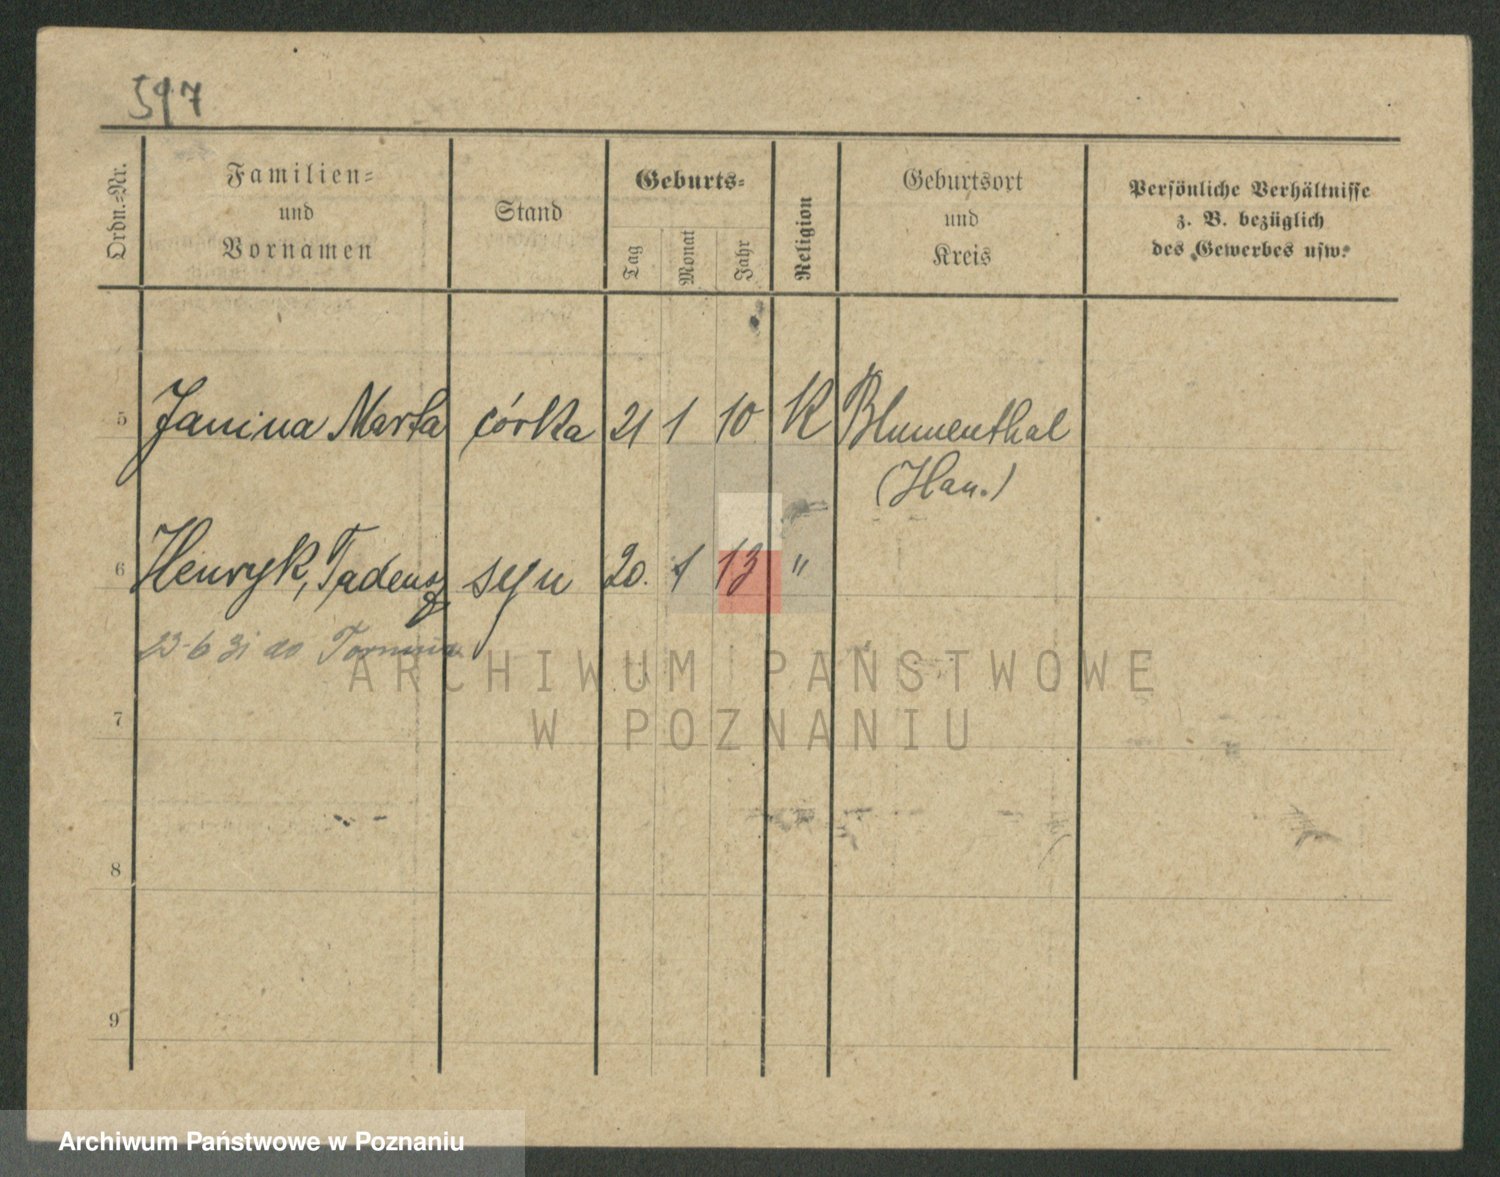 597
Ordn.-Nr.
Familien-
und
Vornamen
Stand
Geburts-
Tag
Monat
Jahr
Religion
Geburtsort
und
Kreis
Persönliche Verhältnisse
z. B. bezüglich
des Gewerbes usw.
5 Janina Marta córka 21 1 10 K Blumenthal
(Han.)
6 Henryk, Tadeusz syn 20. 1 13 "
23-6 31 do Torunia
ARCHIWUM PAŃSTWOWE
W POZNANIU
7
8
9
Archiwum Państwowe w Poznaniu